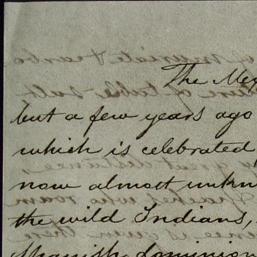 The Me
but a few years ago
which is celebrated
now almost unkn
the wild Indians,
Spanish dominion